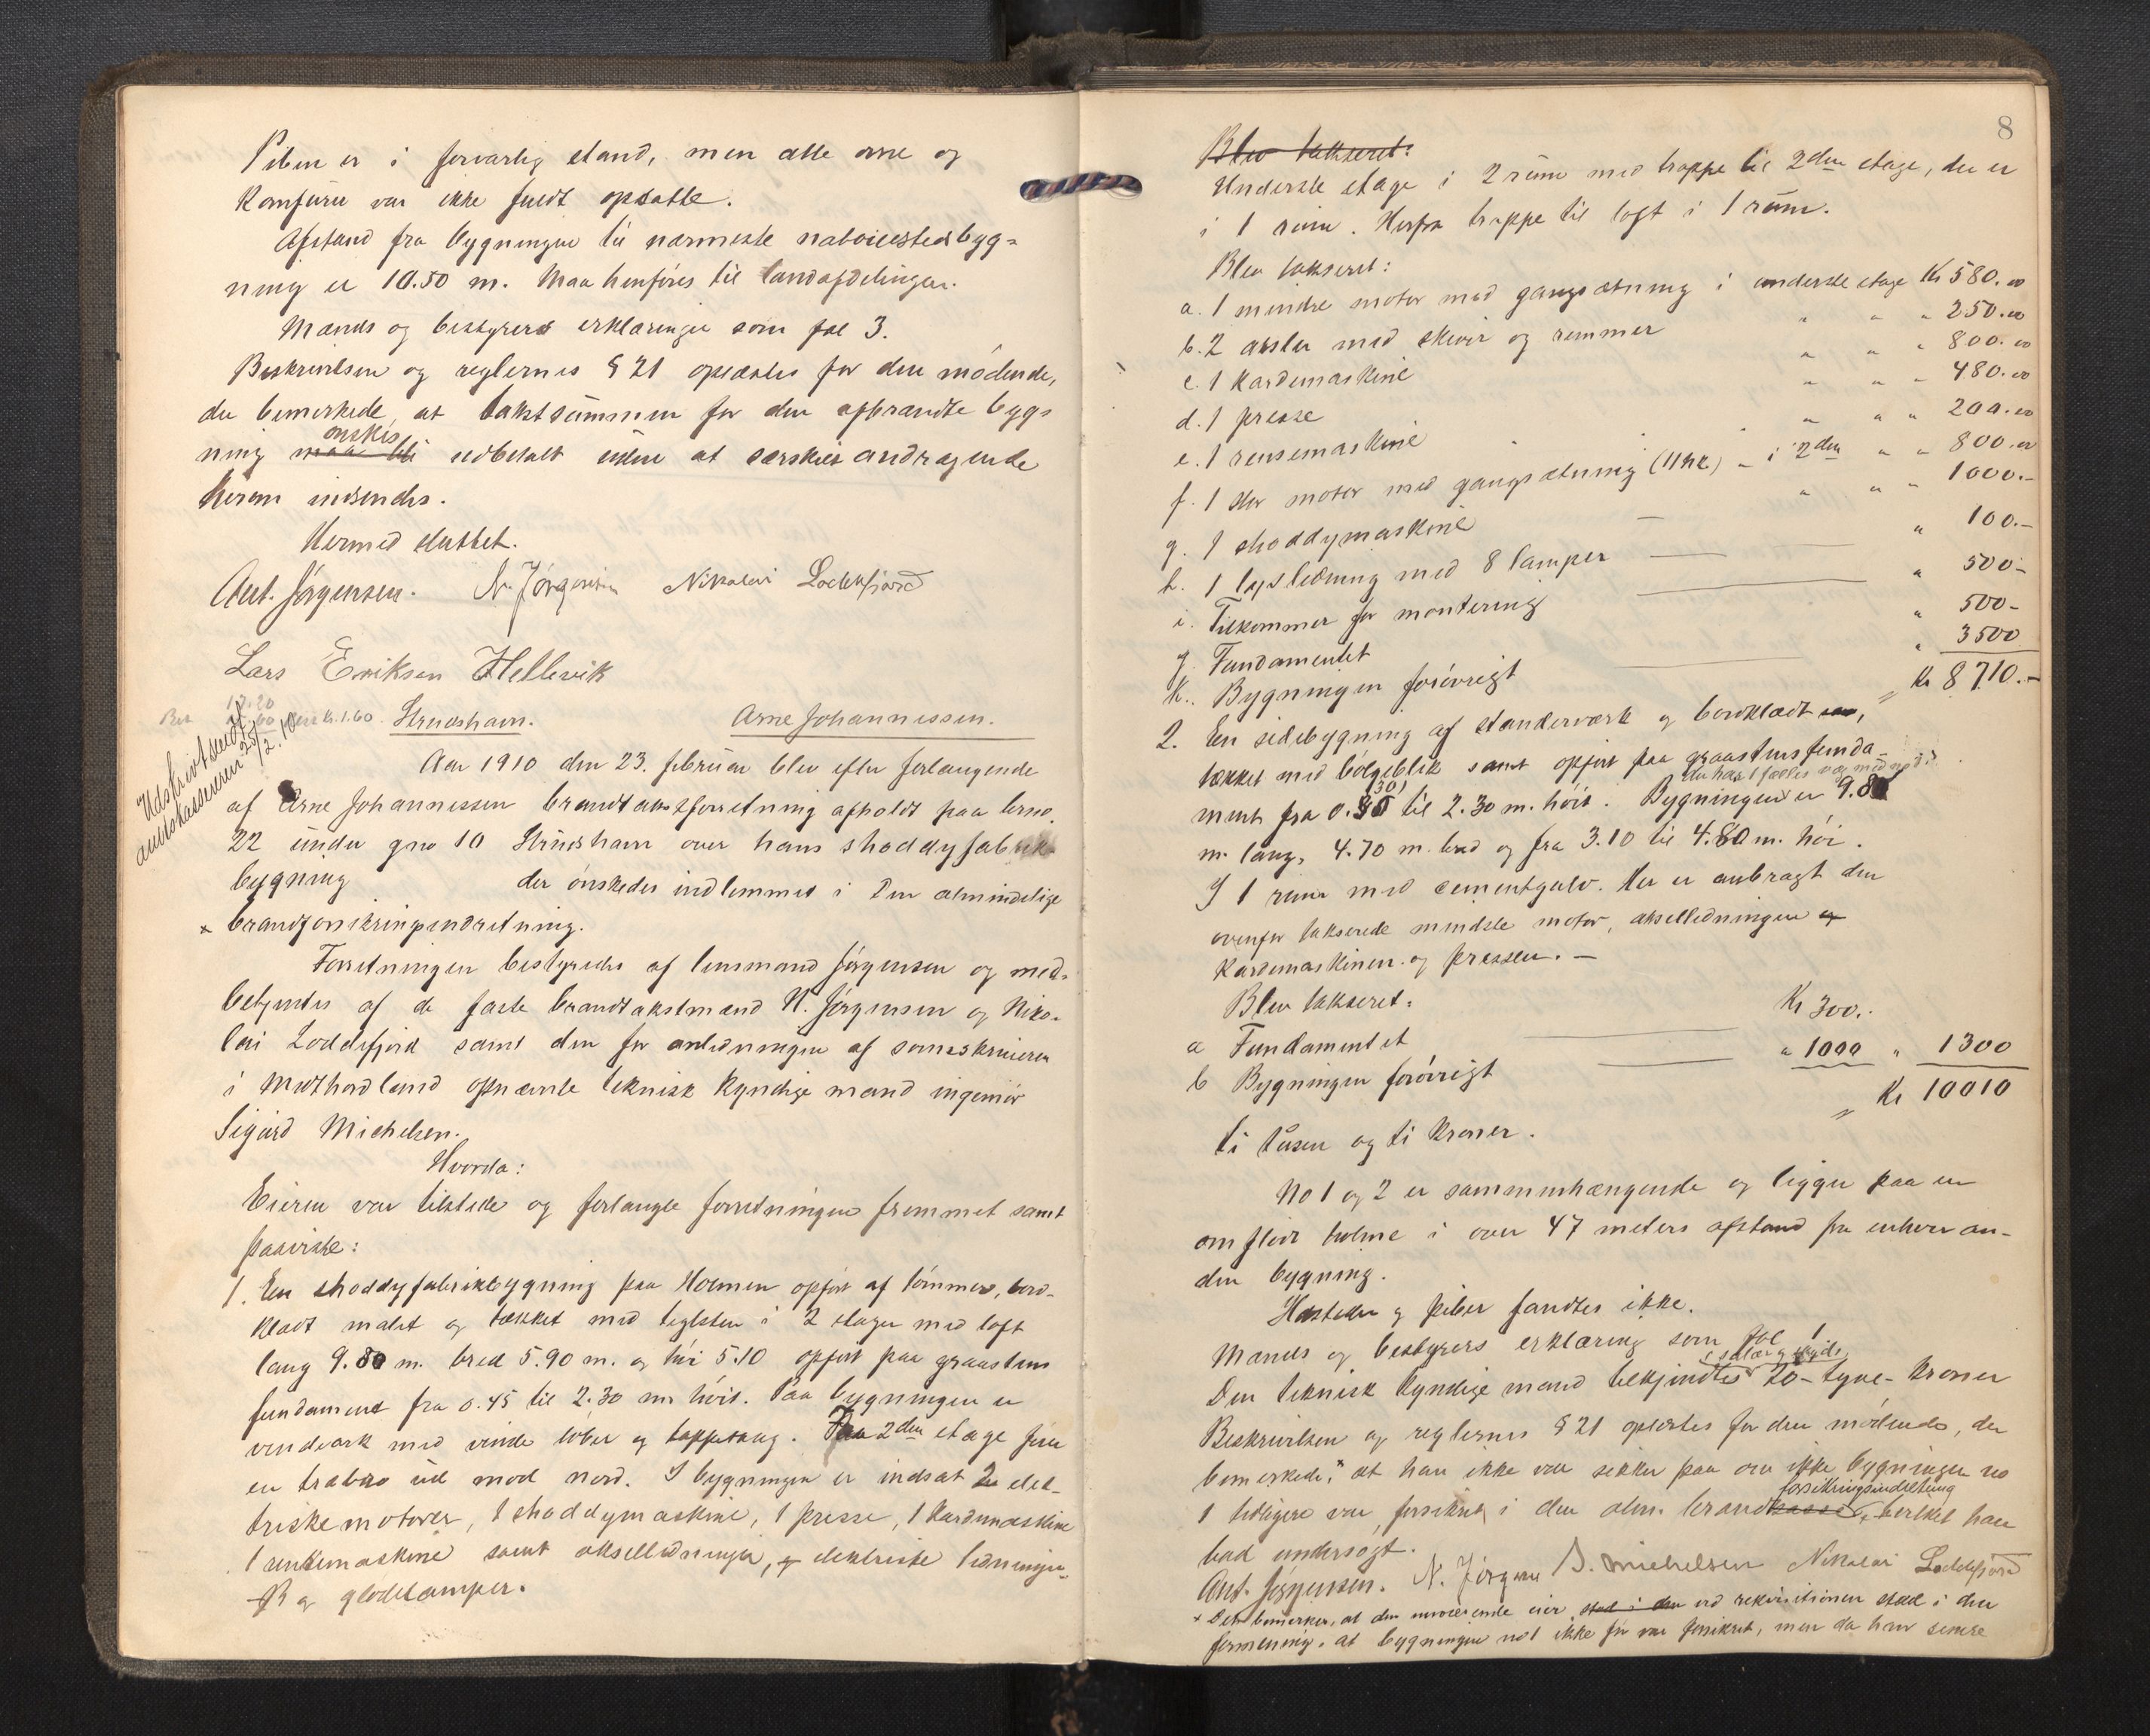 Piben er i forsvarlig stand, men alle ovne og
Komfurer var ikke fuldt opsatte.
Afstand fra bygningen til nærmeste naboilestedsbyg=
ning er 10.50 m. Maa henføres til landafdelingen.
Mænds og bestyrers erklæringer som fol 3.
Beskrivelsen og reglernes § 21 oplæstes for den mødende,
der bemerkede, at takstsummen for den afbrændte byg=
ning maa bli ønskes udbetalt uden at særskilt andragende
herom indsendes.
Hermed sluttet.
Ant. Jørgensen. N. Jørgensen Nikolai Loddefjord
Lars Eriksen Hellevik
Udskrivt sendt
amtskassereren 25/2.10
Strudshavn. Arne Johannessen.
Aar 1910 den 23. februar blev efter forlangende
af Arne Johannessen brandtakstforretning afholdt paa brno.
22 under gno 10 Strudshavn over hans shoddyfabrik
bygning der ønskedes indlemmet i Den almindelige
x brandforsikringsindretning.
Forretningen bestyredes af lensmand Jørgensen og med=
betjentes af de faste brandtakstmænd N. Jørgensen og Niko=
lai Loddefjord samt den for anledningen af sorenskriveren
i Midthordland opnævnte teknisk kyndige mand ingeniør
Sigurd Michelsen.
Hvorda:
Eieren var tilstede og forlangte forretningen fremmet samt
paaviste:
1. En shoddyfabrikbygning paa Holmen opført af tømmer, bord-
klædt malet og tækket med teglsten i 2 etager med loft
lang 9.80 m. bred 5.90 m. og høi 5.10 opført paa graastens
fundament fra 0.45 til 2.30 m høit. Paa bygningen er
vindeark med vinde løber og tappetaug. Fra 2den etage fører
en træbro ud mod nord. I bygningen er indsat 2 elek-
triske motorer, 1 shoddymaskine, 1 presse, 1 Kardemaskine
1 rensemaskine samt akselledninger, og elektriske ledninger
og glødelamper.
8
Blev takseret:
Underste etage i 2 rum med trappe til 2den etage, der er
i 1 rum. Herfra trappe til loft i 1 rum.
Blev takseret:
a. 1 mindre motor med gangsætning i underste etage Kr 580.00
b. 2 aksler med skiver og remmer " " " 250.00
c. 1 Kardemaskine " " " 800.00
d. 1 presse " " " 480.00
e. 1 rensemaskine " " " 200.00
f. 1 stor motor med gangsætning (11 HK) - i 2den " " 800.00
g. 1 shoddymaskine " " " 1000.-
h. 1 lysledning med 8 lamper " 100.-
i. Tilkommer for montering " 500-
j. Fundamentet " 500-
k. Bygningen forøvrigt " 3500
Kr 8710.-
2. En sidebygning af standerværk og bordklædt
tækket med bølgeblik samt opført paa graastensfunda-
ment fra 0.30 (30) til 2.30 m. høit. Bygningen der har 1 fælles væg med no 1 er 9.80
m. lang, 4.70 m. bred og fra 3.10 til 4.80 m. høi.
I 1 rum med cementgulv. Her er anbragt den
ovenfor takserede mindste motor, akselledningen og
Kardemaskinen og pressen. -
Blev takseret:
a Fundamentet Kr 300.-
b Bygningen forøvrigt " 1000 " 1300
Kr 10010
ti tusen og ti Kroner.
No 1 og 2 er sammenhængende og ligger paa en
omflødt holme i over 47 meters afstand fra enhver an-
den bygning.
Ildsteder og piber fandtes ikke.
Mænds og bestyrers erklæring som fol 1
Den teknisk kyndige mand tilkjendtes i salær og skyds 20 - tyve - Kroner
Beskrivelsen og reglernes § 21 oplæstes for den mødende, der
bemerkede, x at han ikke var sikker paa om ikke bygningen no
1 tidligere var forsikret i den alm. brandkasse forsikringsindretning, hvilket han
bad undersøgt.
Ant. Jørgensen. N. Jørgensen S. Michelsen Nikolai Loddefjord
x Det bemerkes, at den nuværende eier stod i den ved rekvisitionen stod i den
formening, at bygningen no 1 ikke før var forsikret, men da han senere